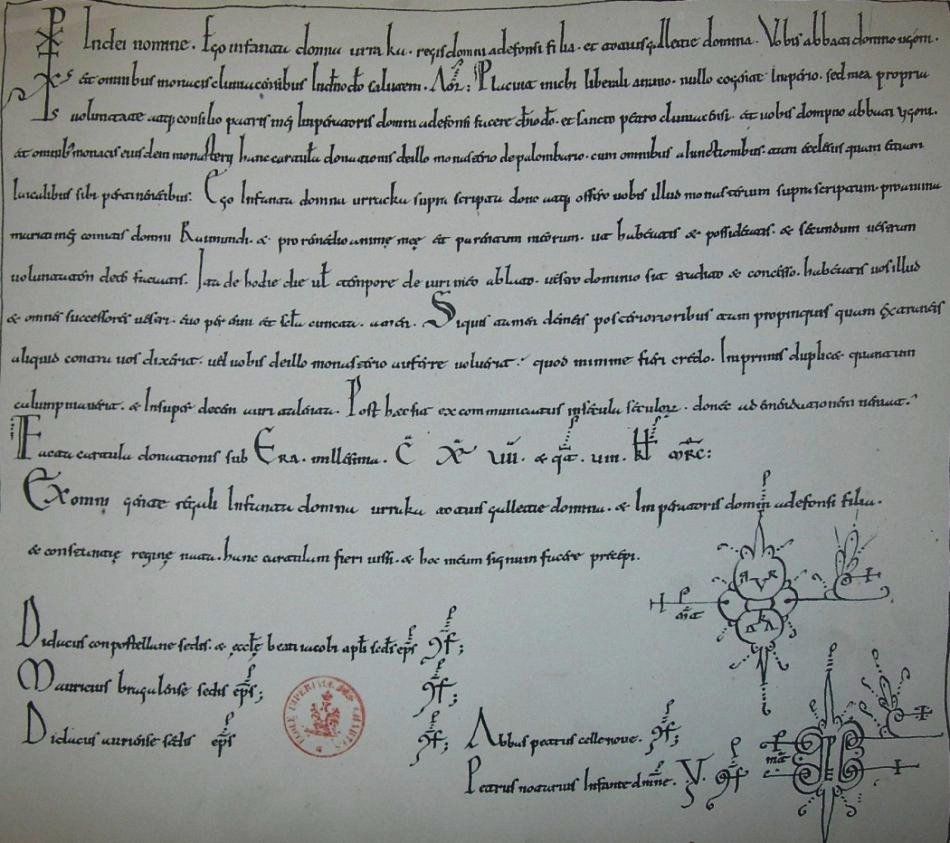 In dei nomine. Ego infanta domna urraka. regis domni adefonsi filia. et totius gallecie domna. Vobis abbati domno ugoni.
et omnibus monacis cluniacensibus In domino deo salutem. Amen: Placuit michi liberali animo. nullo cogente Imperio. sed mea propria
voluntate atque consilio patris mei Imperatoris domni adefonsi facere domino deo. et sancto petro cluniacensi. et vobis dompno abbati ugoni.
et omnibus monacis eiusdem monasterii hanc cartulam donationis de illo monasterio de palombario. cum omnibus adiunctionibus. tam ecclesiis quam etiam
laicalibus sibi pertinentibus. Ego Infanta domna urracka supra scripta dono atque offero vobis illud monasterium suprascriptum. pro anima
mariti mei comitis domni Raimundi. et pro remedio anime mee et parentum meorum. ut habeatis et possideatis. et secundum vestram
voluntatem deo faciatis. Ita de hodie die vel tempore de iuri meo ablato. vestro dominio sit tradito et concesso. habeatis vos illud
et omnes successores vestri. evo perenni et secula cuncta. amen. Siquis tamen de meis posterioribus tam propinquis quam extraneis
aliquid contra vos dixerit. vel vobis de illo monasterio auferre voluerit. quod minime fieri credo. Imprimis duplice quantum
calumpniaverit. et Insuper decem auri talenta. Post hec sit excommunicatus in secula seculorum. donec ad emendationem veniat.
Facta cartula donationis sub Era. millesima. C XL VIII. et qt. VIII. kl mrc:
Ex omni genere reguli Infanta domna urraka totius gallecie domna. et Imperatoris domni adefonsi filia.
et constancie regine nata. hanc cartulam fieri iussi. et hoc meum signum facere precepi.
Didacus conpostellane sedis. et ecclesie beati iacobi apostoli sedis eps cf;
Mauricius bragalense sedis eps; cf;
Didacus auriense sedis eps cf;
Abbas petrus cellenove. cf;
Petrus notarius Infante domne. V. cf